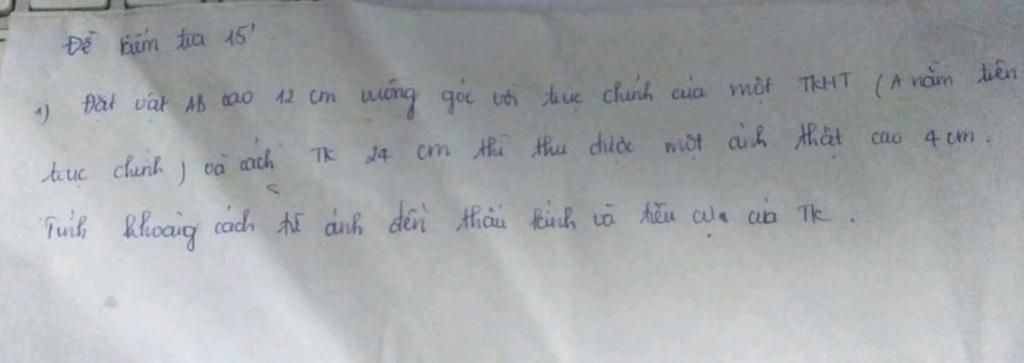 Đề kiểm tra 15'
1) Đặt vật AB cao 12 cm vuông góc với trục chính của một TKHT (A nằm trên
trục chính) và cách TK 24 cm thì thu được một ảnh thật cao 4 cm.
Tính khoảng cách từ ảnh đến thấu kính và tiêu cự của TK.